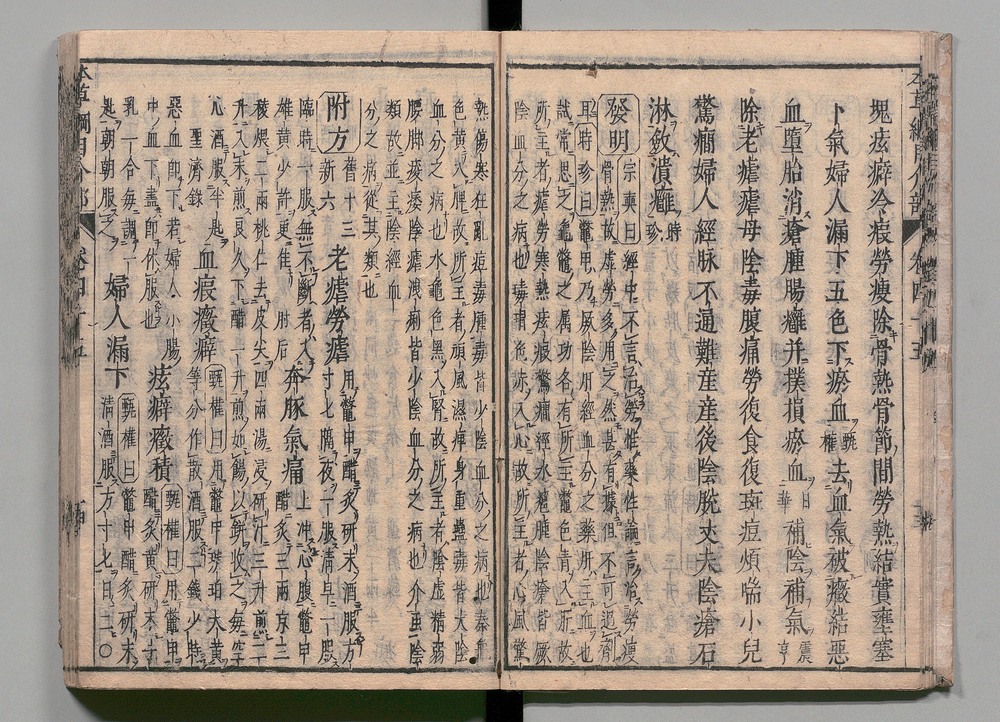 塊痃癖冷瘕勞瘦除骨熱骨節間勞熱結實壅塞
下氣婦人漏下五色下瘀血甄權去血氣破癥結惡
血墮胎消瘡腫腸癰并撲損瘀血日華補陰補氣震亨
除老瘧瘧母陰毒腹痛勞復食復斑痘煩喘小兒
驚癇婦人經脉不通難産産後陰脫丈夫陰瘡石
淋斂潰癰時珍
發明宗奭曰經中不言治勞惟藥性論言治勞瘦
骨熱故虛勞多用之然甚有據但不可過劑
耳時珍曰鼈甲乃厥陰肝經血分之藥肝主血也
試常思之龜鼈之屬功各有所主鼈色青入肝故
所主者瘧勞寒熱痃瘕驚癇經水癰腫陰瘡皆厥
陰血分之病也瑇瑁色赤入心故所主者心風驚
熱傷寒狂亂痘毒腫毒皆少陰血分之病也秦龜
色黃入脾故所主者頑風濕痺身重蠱毒皆太陰
血分之病也水龜色黑入腎故所主者陰虛精弱
腰脚痠痿陰瘧洩痢皆少陰血分之病也介蟲陰
類故並主陰經血
分之病從其類也
附方舊十三新六老瘧勞瘧用鼈甲醋炙研末酒服方
寸七隔夜一服清早一服
臨時一服無不斷者入
雄黃少許更佳肘后奔豚氣痛上冲心腹鼈甲
醋炙三兩京三
稜煨二兩桃仁去皮尖四兩湯浸研汁三升煎二
升入末煎良久下醋一升煎如餳以缾收之每空
心酒服半匙
聖濟錄血瘕癥癖甄權曰用鼈甲琥珀大黃
等分作散酒服二錢少時
惡血卽下若婦人小腸
中血下盡卽休服也痃癖癥積甄權曰用鼈甲
醋炙黃研末牛
乳一合每調一
匙朝朝服之婦人漏下甄權曰鼈甲醋炙研末
清酒服方寸七日二〇